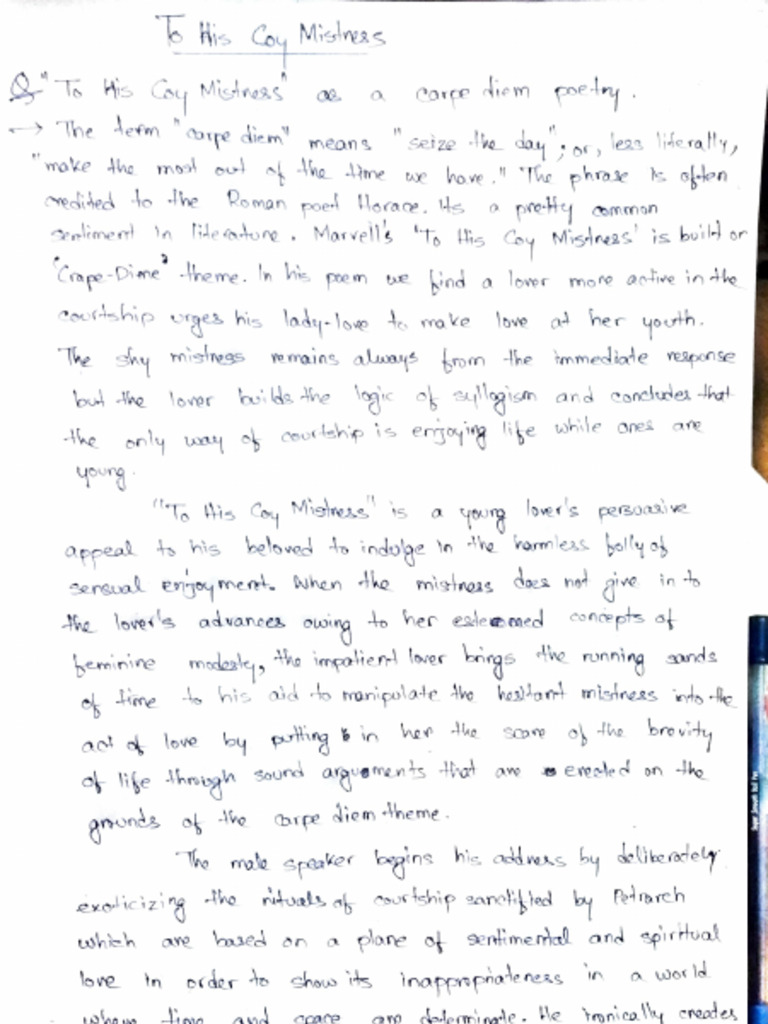 To His Coy Mistress
Q "To His Coy Mistress" as a carpe diem poetry.
→ The term "carpe diem" means "seize the day"; or, less literally,
"make the most out of the time we have." The phrase is often
credited to the Roman poet Horace. Its a pretty common
sentiment in literature. Marvell's 'To His Coy Mistress' is built or
"Crape-Dime" theme. In his poem we find a lover more active in the
courtship urges his lady-love to make love at her youth.
The shy mistress remains always from the immediate response
but the lover builds the logic of syllogism and concludes that
the only way of courtship is enjoying life while ones are
young.
"To His Coy Mistress" is a young lover's persuasive
appeal to his beloved to indulge in the harmless folly of
sensual enjoyment. When the mistress does not give in to
the lover's advances owing to her esteemed concepts of
feminine modesty, the impatient lover brings the running sands
of time to his aid to manipulate the hesitant mistress into the
act of love by putting in her the scare of the brevity
of life through sound arguments that are erected on the
grounds of the carpe diem theme.
The male speaker begins his address by deliberately
exoticizing the rituals of courtship sanctified by Petrarch
which are based on a plane of sentimental and spiritual
love in order to show its inappropriateness in a world
where time and space are determinate. He ironically creates